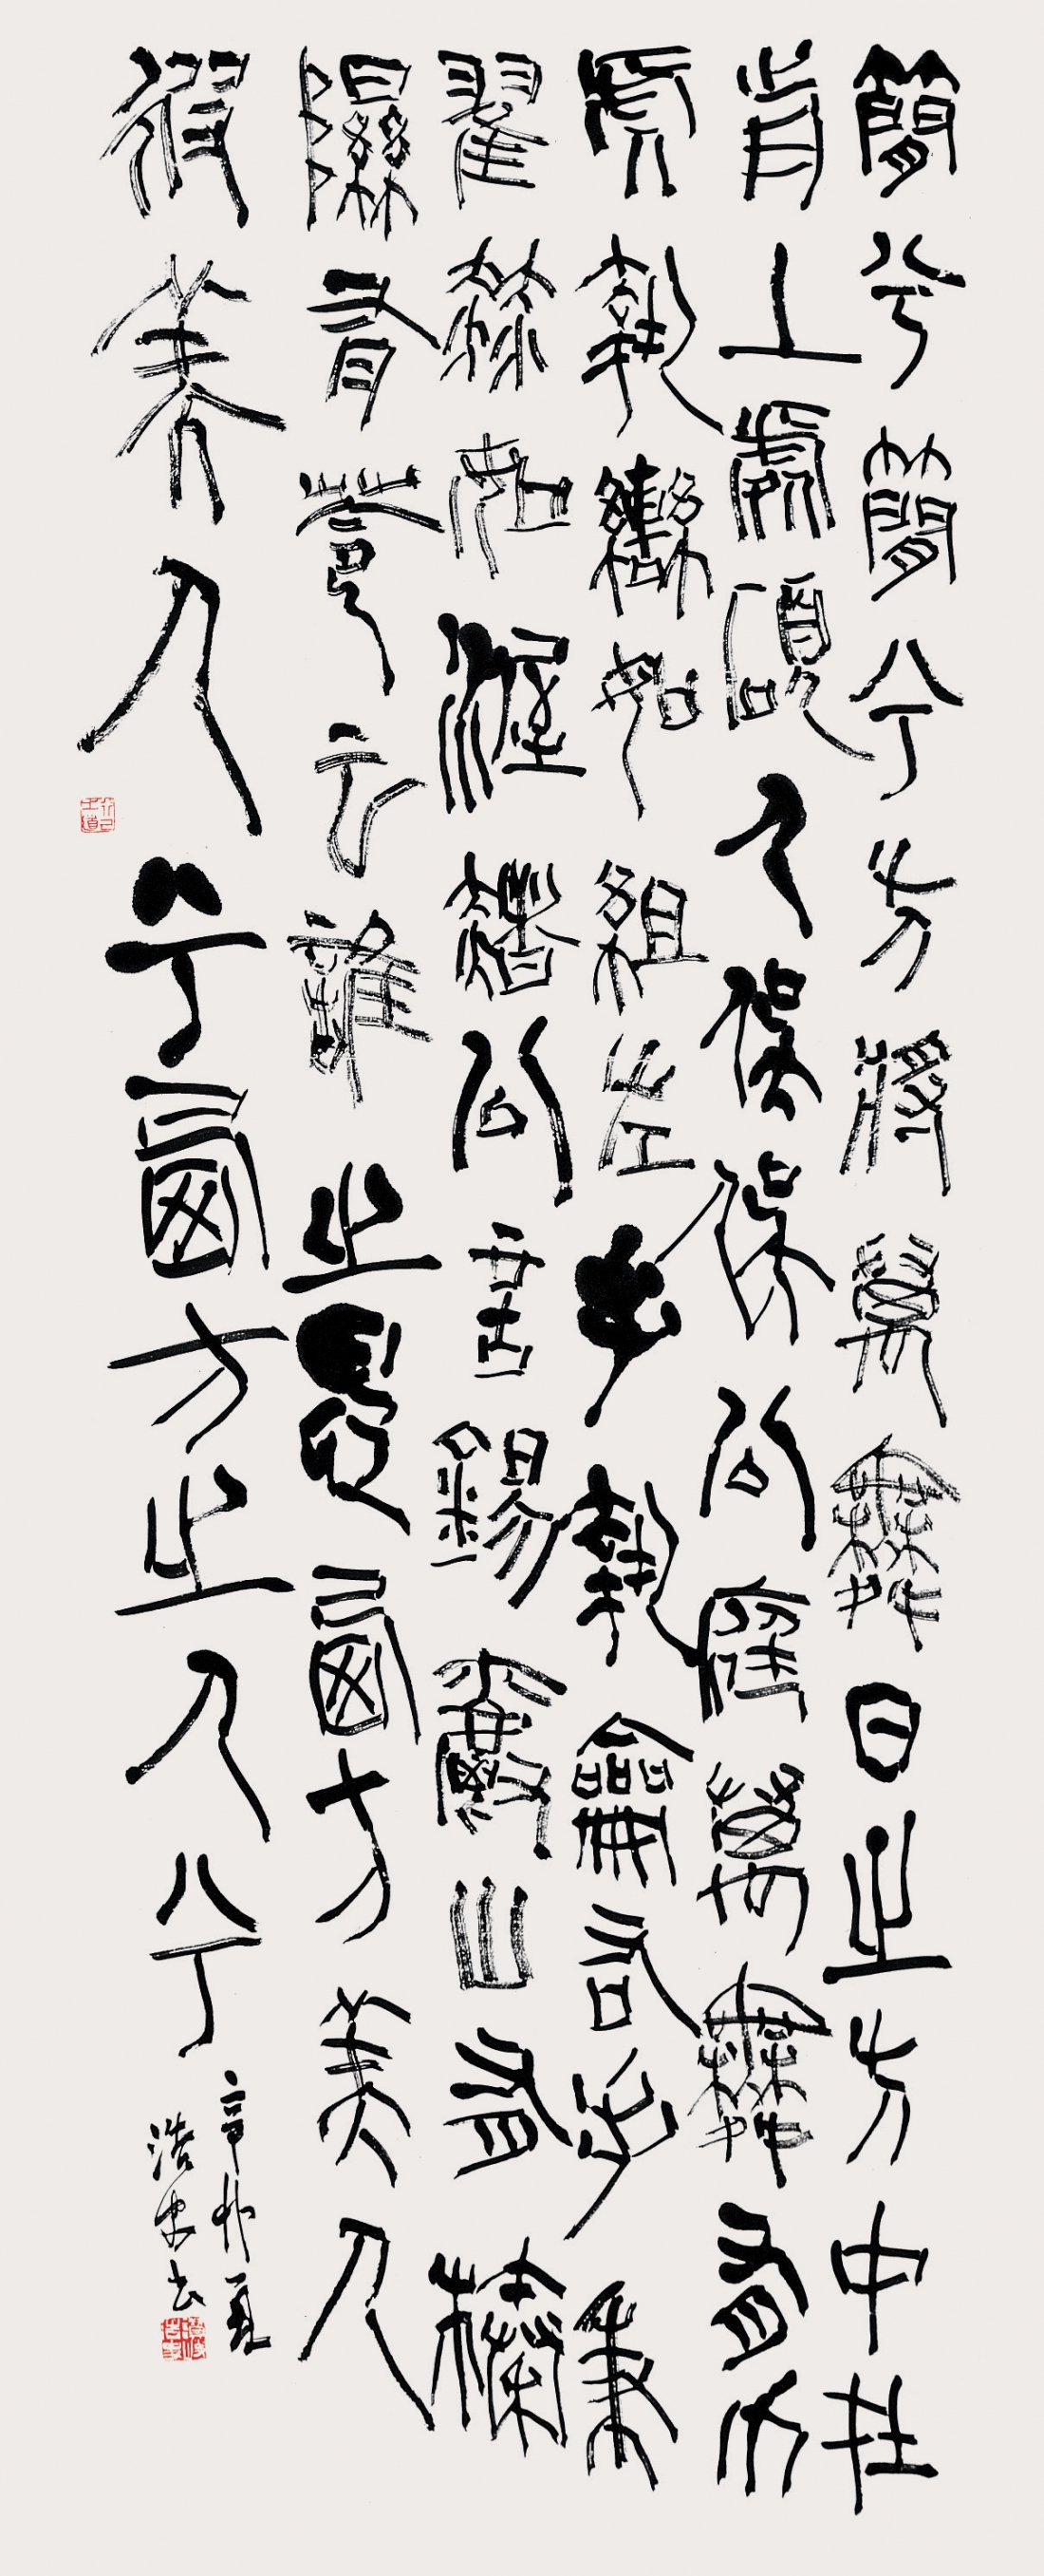 簡兮簡兮方將萬舞日之方中在
前上處碩人俁俁公庭萬舞有力
虎執轡如組左手執籥右手秉
翟赫如渥赭公言錫爵山有榛
隰有苓云誰之思西方美人
彼美人兮西方之人兮
辛卯夏
浩书